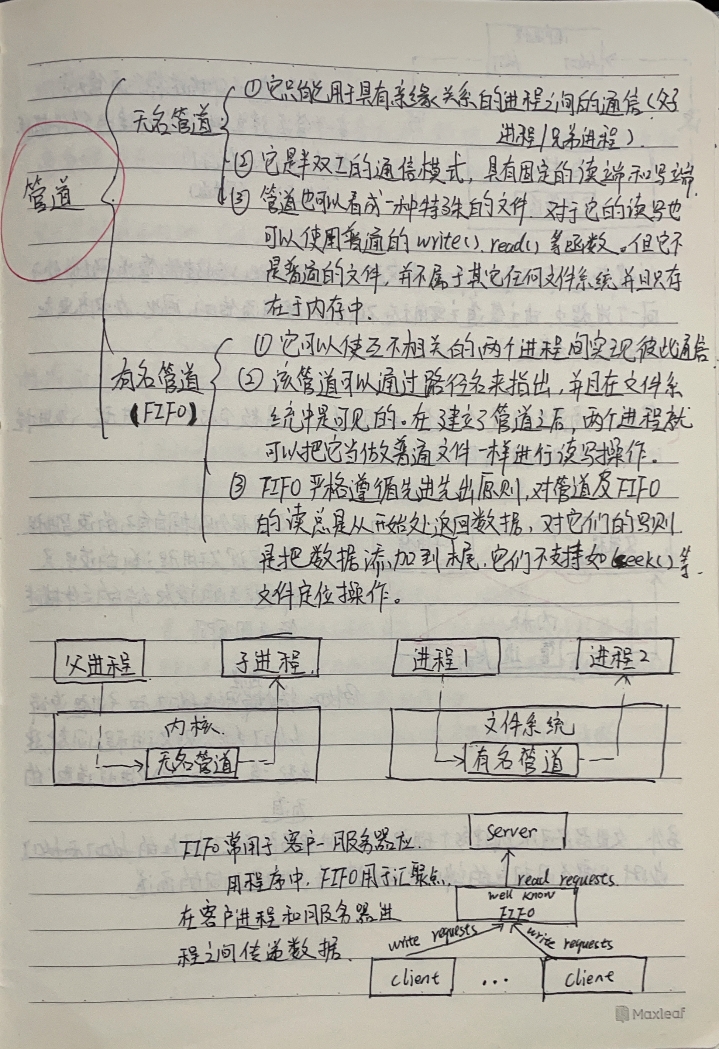 管道
无名管道
① 它只能用于具有亲缘关系的进程之间的通信（父子
进程/兄弟进程）.
② 它是半双工的通信模式，具有固定的读端和写端.
③ 管道也可以看成一种特殊的文件，对于它的读写也
可以使用普通的write()、read()等函数。但它不
是普通的文件，并不属于其它任何文件系统并且只存
在于内存中.
有名管道
(FIFO)
① 它可以使互不相关的两个进程间实现彼此通信.
② 该管道可以通过路径名来指出，并且在文件系
统中是可见的。在建立了管道之后，两个进程就
可以把它当做普通文件一样进行读写操作。
③ FIFO严格遵循先进先出原则，对管道及FIFO
的读总是从开始处返回数据，对它们的写则
是把数据添加到末尾.它们不支持如lseek()等
文件定位操作。
父进程 子进程. 进程1 进程2
内核. 文件系统
无名管道 有名管道
FIFO常用于客户—服务器应
用程序中，FIFO用于汇聚点，
在客户进程和服务器进
程之间传递数据.
server
read requests.
well know
FIFO
write requests write requests
client ... client
Maxleaf